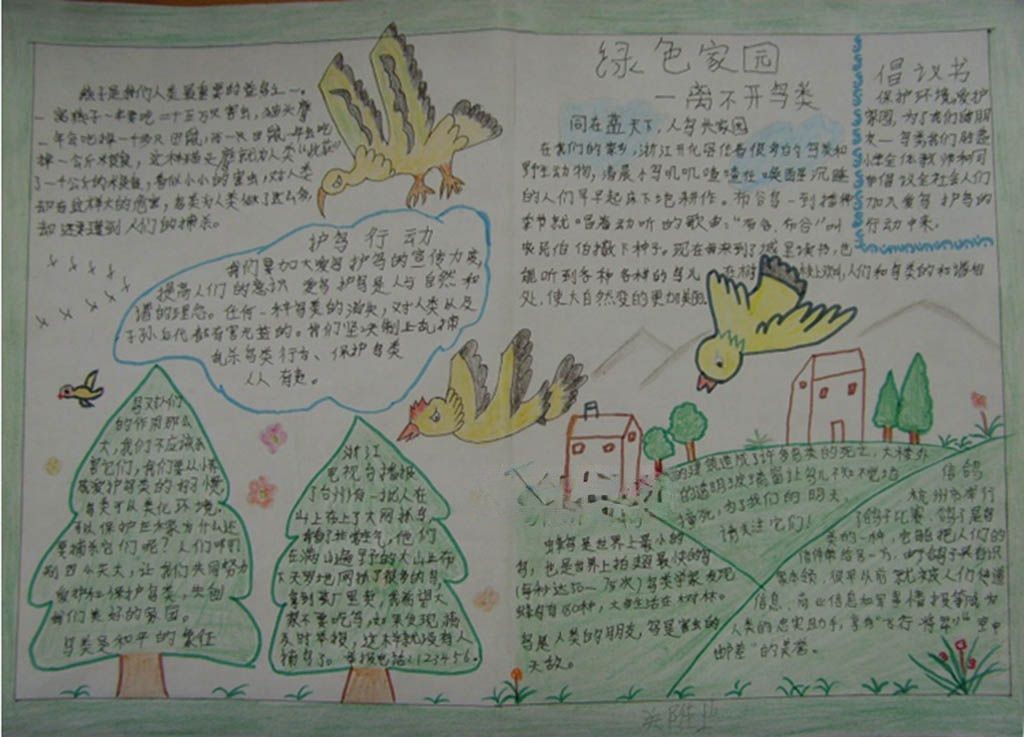 燕子是我们人类最重要的益鸟之一。
一窝燕子一年要吃二十五万只害虫，猫头鹰
一年会吃掉一千多只田鼠，而一只田鼠一年会吃
掉一公斤
了一千公斤的
却还遭到人们的捕杀。
护鸟行动
我们要加大爱鸟护鸟的宣传力度，
提高人们的意识 爱鸟护鸟是人与自然和
谐的理念。任何一种鸟类的消失，对人类以及
子孙后代都有害无益的。我们坚决制止乱捕
乱杀鸟类行为、保护鸟类
人人有责。
鸟对人们
的作用那么
大，我们不应该杀
害它们，我们要从小养
成爱护鸟类的好习惯，
鸟类可以美化环境，
为什么还
要捕杀它们呢？人们呼吁
让我们共同努力
爱护和保护鸟类，共创
我们美好的家园。
鸟类是和平的象征
浙江
电视台播报
了台州有一批人在
山上布上了大网抓鸟，
他们
在满山遍野的大山上布
下天罗地网抓了很多的鸟，
拿到菜厂里卖，我希望大
家不要吃鸟，如果发现，请
及时举报，这样就没有人
捕鸟了。举报电话：123456.
绿色家园
一离不开鸟类
同在蓝天下，人鸟共家园
在我们的家乡，浙江开化居住着很多的鸟类和
野生动物，清晨小鸟叽叽喳喳在唤醒沉睡
的人们早早起床下地耕作。布谷鸟一到播种
季节就唱着动听的歌声："布谷、布谷"叫
农民伯伯撒下种子。现在我来到了城里读书，也
能听到各种各样的鸟儿在树 人们和鸟类的和谐相
处，使大自然变的更加美丽。
倡议书
保护环境，爱护
家园，为了我们的朋
友一鸟类我们
小学全体教师和同
学倡议全社会人们
加入爱鸟护鸟的
行动中来。
的建筑造成了许多鸟类的死亡，大楼外
的透明玻璃窗让鸟儿不知不觉地
撞死，为了我们的明天，
请关注它们！
蜂鸟是世界上最小的
鸟，也是世界上拍翅最快的鸟
(每秒达50—75次)鸟类学家发现
大都生活在树林。
鸟是人类的朋友，鸟是害虫的
天敌。
信鸽
杭州市举行
了鸽子比赛，鸽子是鸟
类的一种，它能把人们的
信件带给另一方，由于鸽子具有识
归本领，很早以前就被人们传递
信息、商业信息和军事情报等成为
人类的忠实助手，享有"飞行将军""空中
邮差"的美誉。